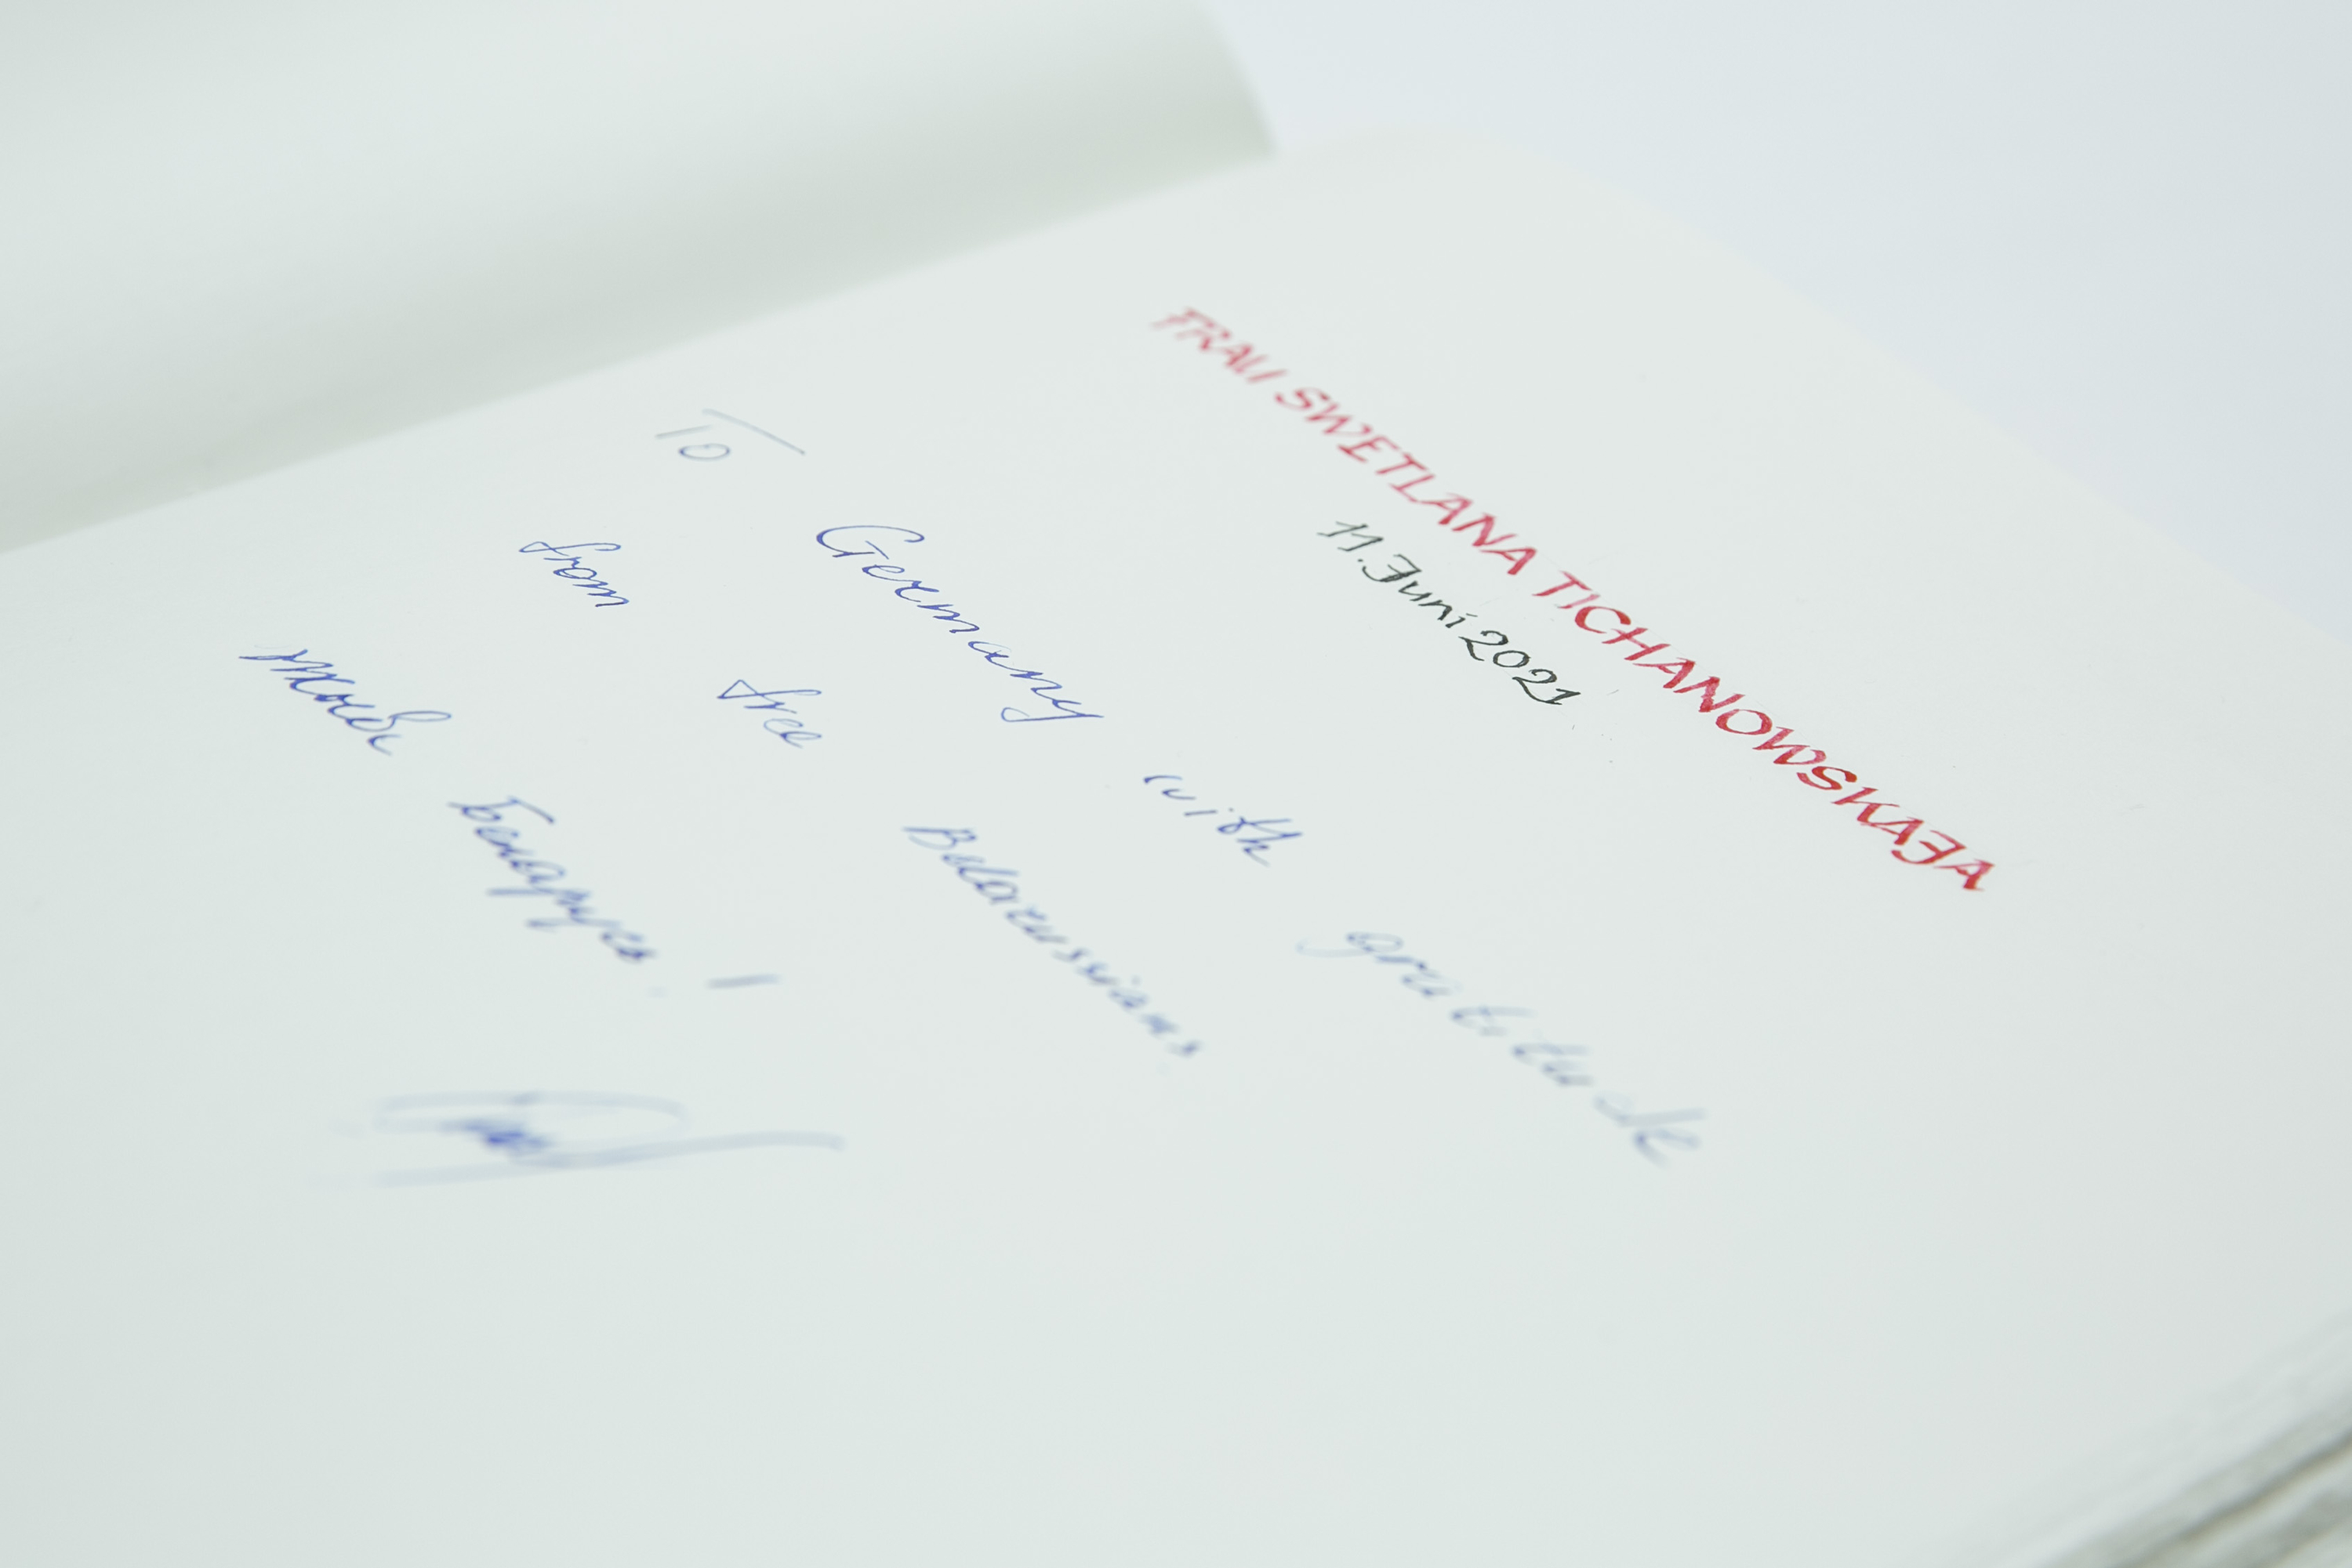 FRAU SWETLANA TICHANOWSKAJA
11. Juni 2021
To Germany with gratitude
from free Belarussians
Жыве Беларусь!